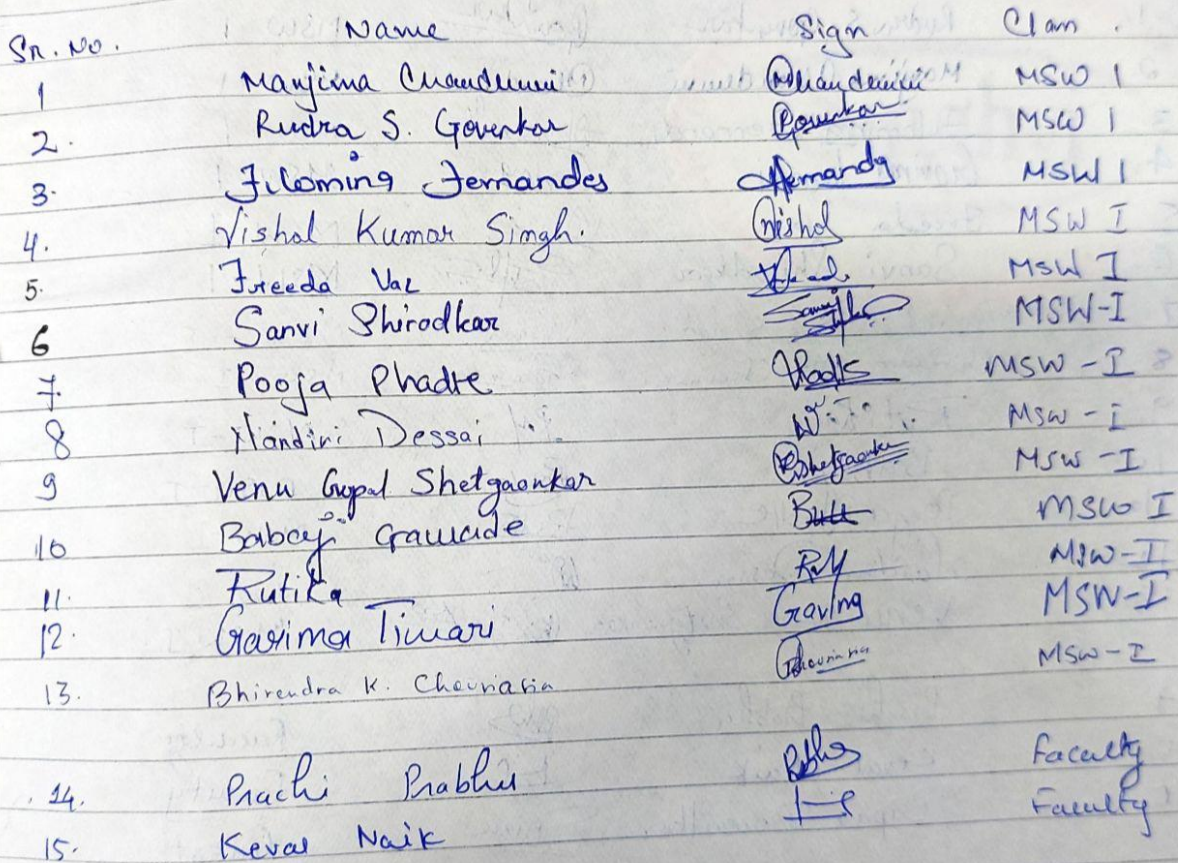 Sr. No. Name Sign Class.
1 Manjima Chandunni Chandunni MSW 1
2. Rudra S. Govenkar Govenkar MSW 1
3. Filomina Fernandes Fernandes MSW 1
4. Vishal Kumar Singh. Vishal MSW I
5. Freeda Vaz MSW I
6 Sanvi Shirodkar MSW-I
7. Pooja Phadte MSW-I
8 Nandini Dessai MSW-I
9 Venu Gopal Shetgaonkar Shetgaonkar MSW-I
10 Babaji Gawade MSW I
11. Rutika MSW-I
12. Garima Tiwari MSW-I
13. Bhirendra K. Chouriasia MSW-I
14. Prachi Prabhu Faculty
15. Keval Naik Faculty